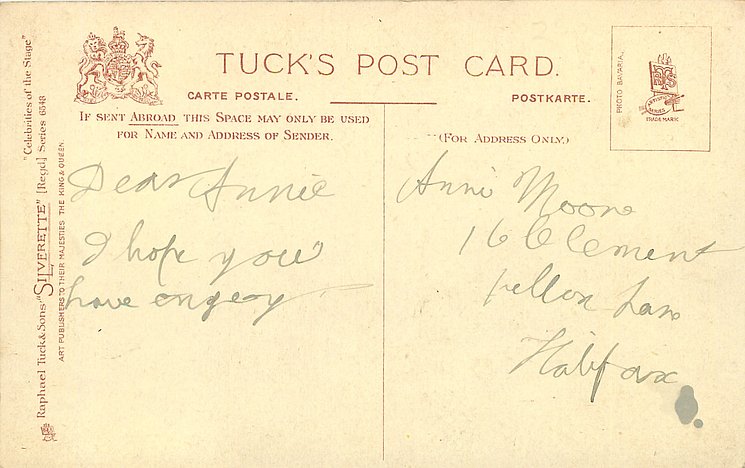 TUCK'S POST CARD.
CARTE POSTALE.
POSTKARTE.
IF SENT ABROAD THIS SPACE MAY ONLY BE USED
FOR NAME AND ADDRESS OF SENDER.
(FOR ADDRESS ONLY)
PHOTO BAVARIA.
TRADE MARK
"Celebrities of the Stage"
Raphael Tuck & Sons' "SILVERETTE" [Regd] Series 6548
ART PUBLISHERS TO THEIR MAJESTIES THE KING & QUEEN
Dear Annie
I hope you
have engeoy
Anni Moore
16 Clement
Pellon Lane
Halifax